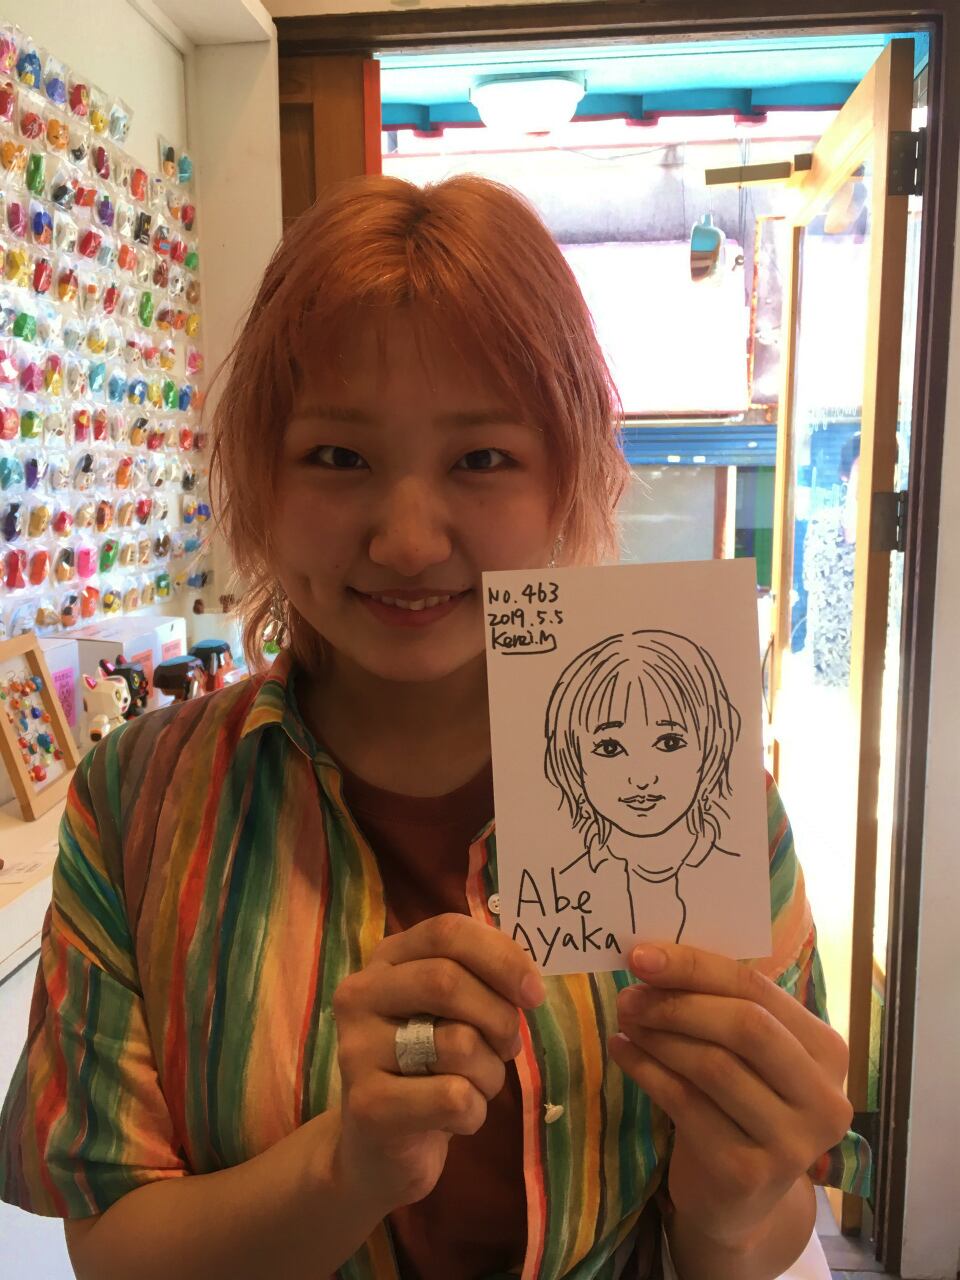 No. 463
2019.5.5
Abe
Ayaka